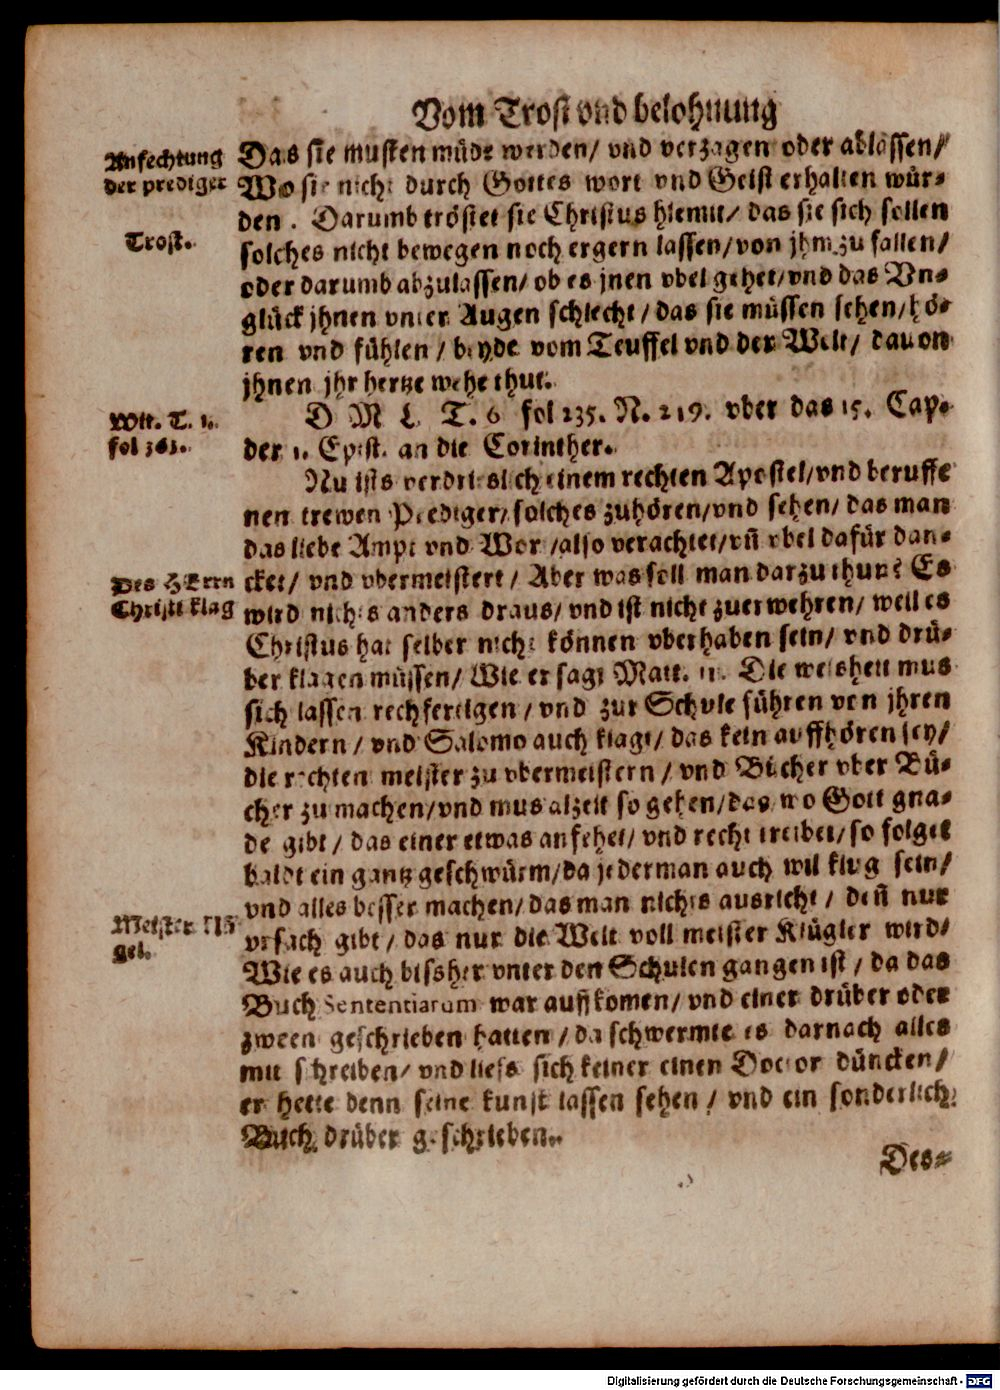 Vom Trost vnd belohnung
Anfechtung
der prediger
Das sie musten müde werden/ vnd verzagen oder ablassen/
Wo sie nicht durch Gottes wort vnd Geist erhalten wür-
den. Darumb tröstet sie Christus hiemit/ das sie sich sollen
Trost.
solches nicht bewegen noch ergern lassen/ von jhm zu fallen/
oder darumb abzulassen/ ob es jnen vbel gehet/ vnd das Vn-
glück jhnen vnter Augen schlecht/ das sie müssen sehen/ hö-
ren vnd fühlen/ beyde vom Teuffel vnd der Welt/ dauon
jhnen jhr hertze wehe thut.
Wit. T. 1.
fol 361.
D M L. T. 6 fol 235. N. 219. vber das 15. Cap.
der 1. Epist. an die Corinther.
Nu ists verdrieslich einem rechten Apostel/ vnd beruffe
nen trewen Prediger/ solches zuhören/ vnd sehen/ das man
das liebe Ampt vnd Wort/ also verachtet/ vñ vbel dafür dan-
Des HErrn
Christi klag
cket/ vnd vbermeistert/ Aber was soll man darzu thun? Es
wird nichts anders draus/ vnd ist nicht zuerwehren/ weil es
Christus hat selber nicht können vberhaben sein/ vnd drü-
ber klagen müssen/ Wie er sagt Matt. 11. Die weisheit mus
sich lassen rechfertigen/ vnd zur Schule führen von jhren
Kindern/ vnd Salomo auch klagt/ das kein auffhören sey/
die rechten meister zu vbermeistern/ vnd Bücher vber Bü-
cher zu machen/ vnd mus alzeit so gehen/ das wo Gott gna-
de gibt/ das einer etwas anfehet/ vnd recht treibet/ so folget
baldt ein gantz geschwürm/ da jederman auch wil klug sein/
vnd alles besser machen/ das man nichts ausricht/ deñ nur
Meister Klü
gel.
vrsach gibt/ das nur die Welt voll meister Klügler wird/
Wie es auch bissher vnter den Schulen gangen ist/ da das
Buch Sententiarum war auffkomen/ vnd einer drüber oder
zween geschrieben hatten/ da schwermte es darnach alles
mit schreiben/ vnd liess sich keiner einen Doctor düncken/
er hette denn seine kunst lassen sehen/ vnd ein sonderlich
Buch drüber geschrieben.
Des-
Digitalisierung gefördert durch die Deutsche Forschungsgemeinschaft - DFG